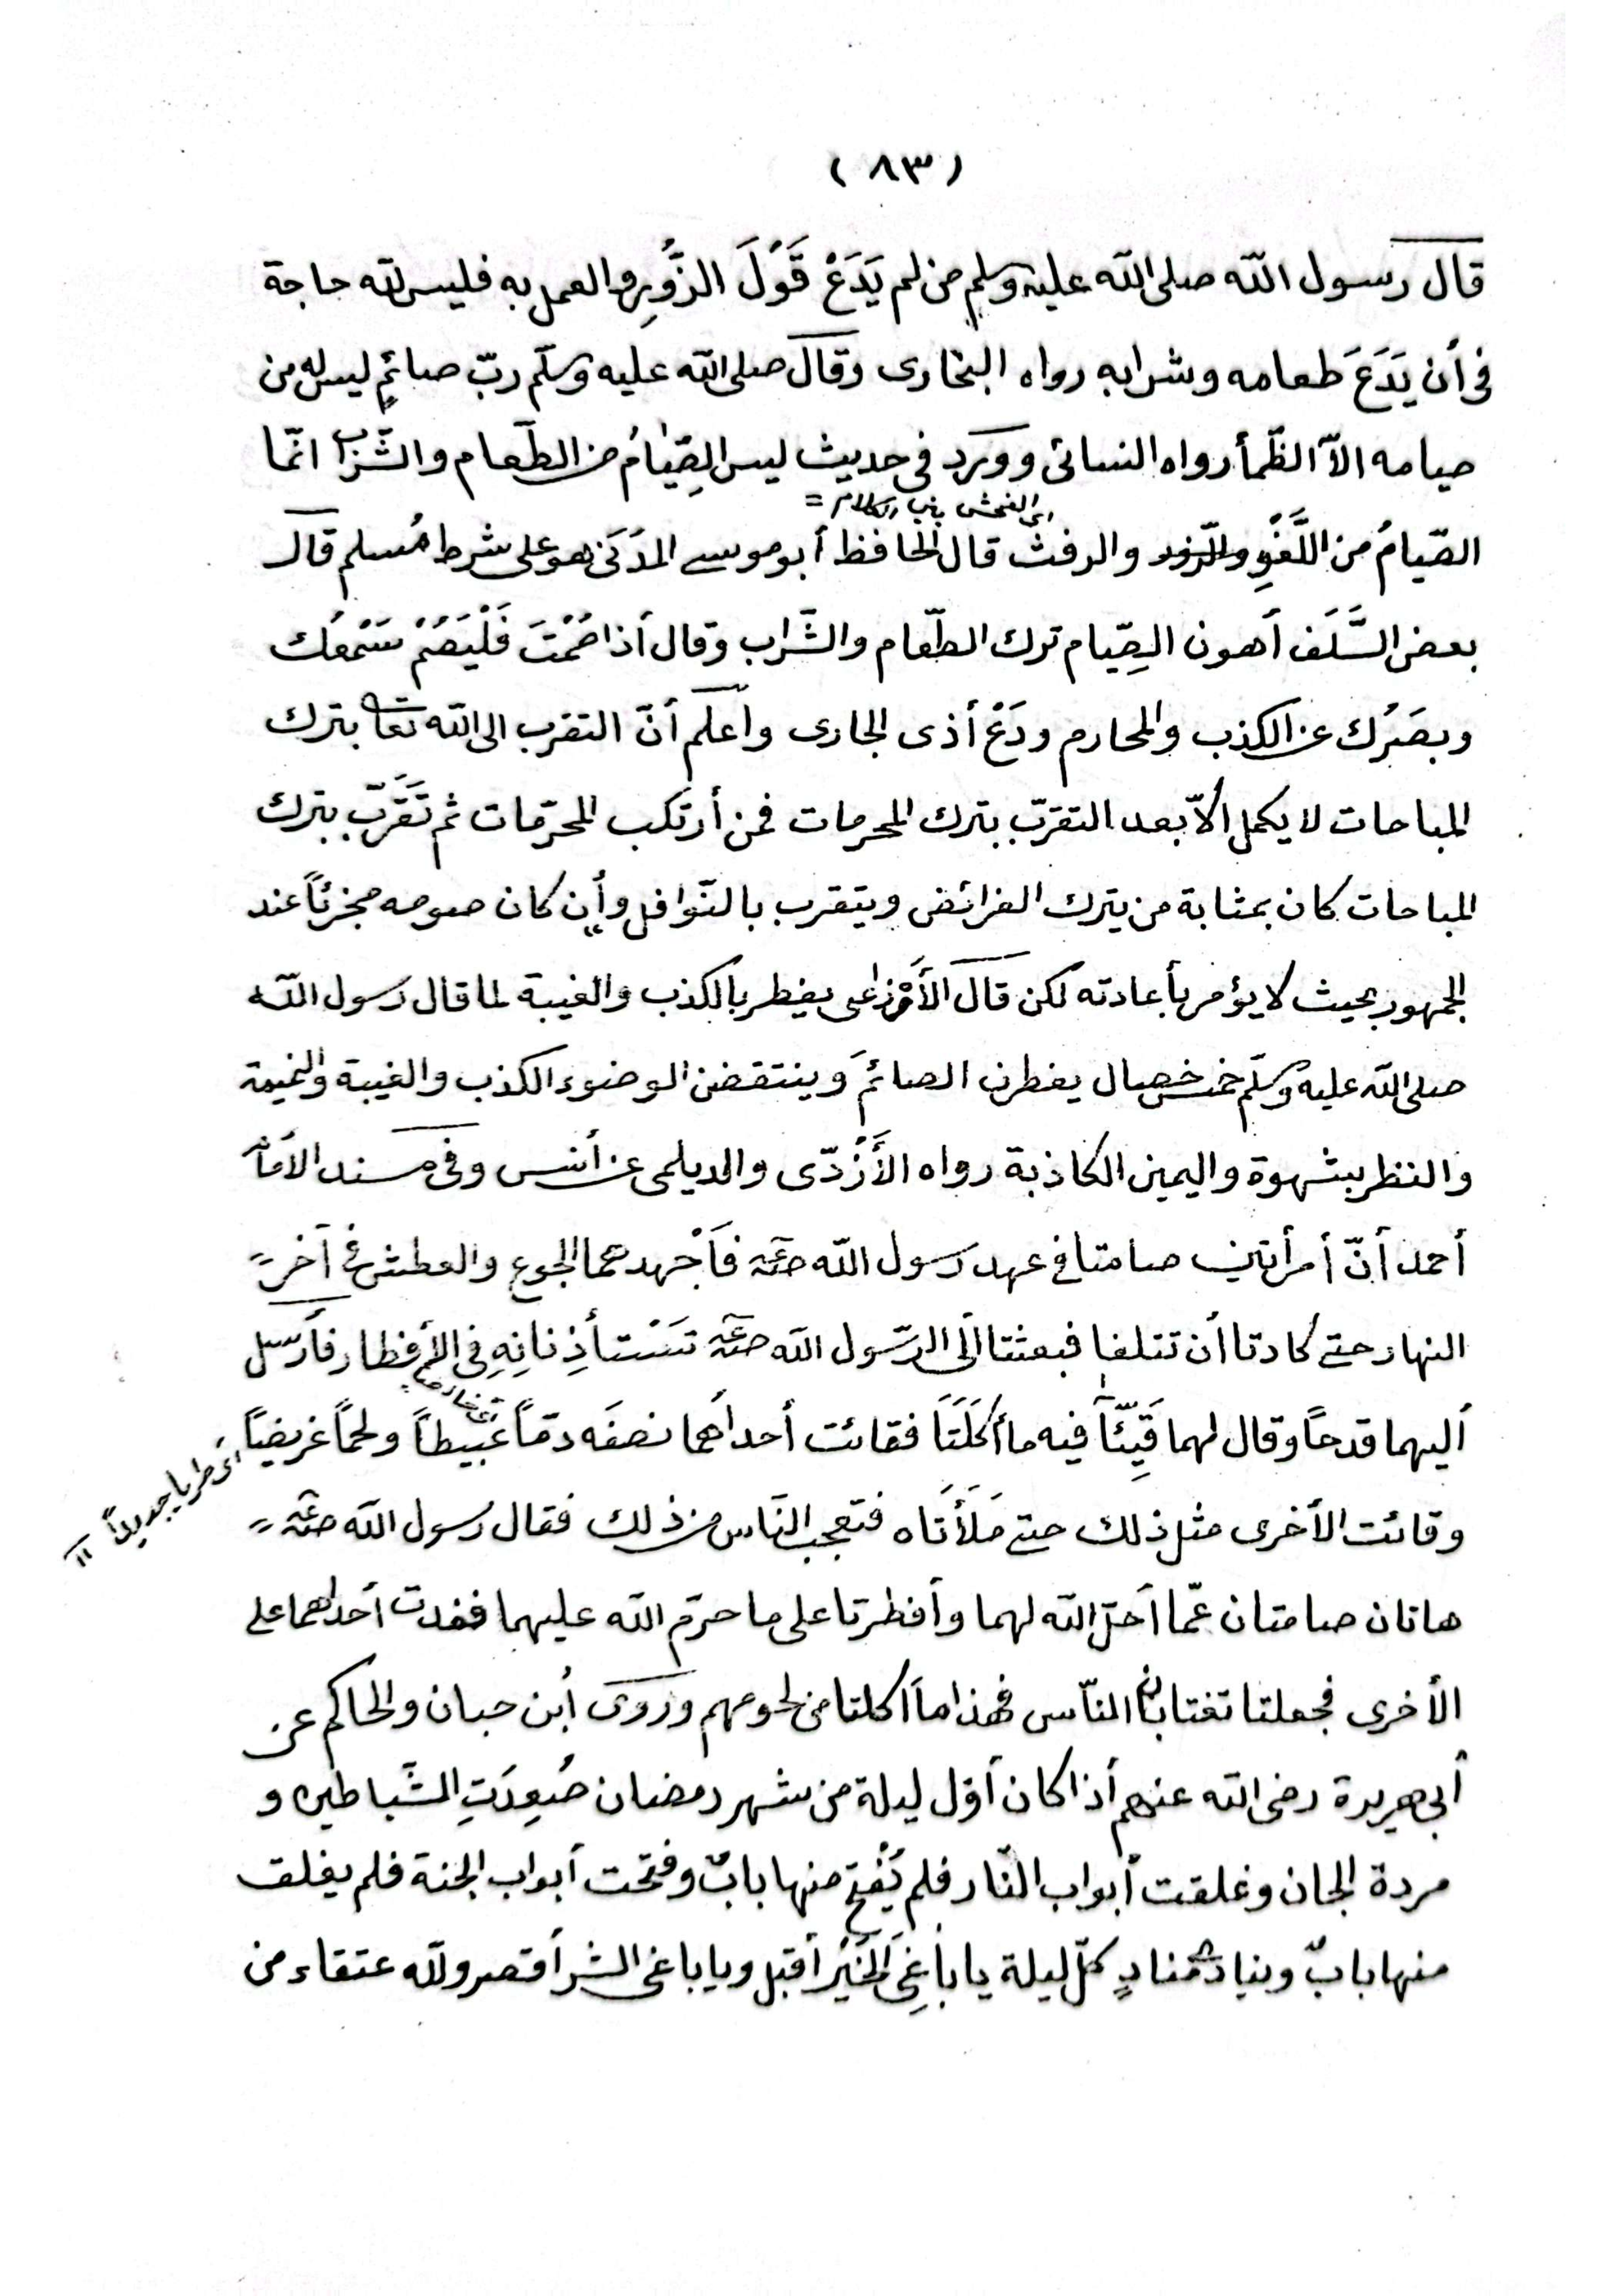 (٨٣)
قال رسول الله صلى الله عليه وسلم من لم يَدَعْ قَوْلَ الزُّورِ والعمل به فليس لله حاجة
في أن يَدَعَ طعامه وشرابه رواه البخارى وقال صلى الله عليه وسلّم ربّ صائمٍ ليس له من
صيامه الاّ الظّمأ رواه النسائى ووَرَد فى حديث ليس الصِّيٰامُ من الطّعام والشّراب انّما
اى الفحش فى الكلام =
الصّيامُ من اللَّغْوِ والرفث قال الحافظ أبو موسى المدَنى هو على شرط مُسلم قال
بعض السَّلَف أهون الصِّيام ترك الطّعام والشَّراب وقال أذا صُمْتَ فَلْيَصُمْ سَمْعُك
وبصَرُك عن الكذب والمحارم ودَعْ أذى الجارى وأعلم أنّ التقرب الى الله تعا بترك
المباحات لا يكمل الاّ بعد التقرّب بترك المحرمات فمن أرتكب المحرّمات ثم تَقَرّب بترك
المباحات كان بمثابة من يترك الفرائض ويتقرب بالنّوافل وأن كان صومه مجزئاً عند
الجمهور بحيث لا يؤمر بأعادته لكن قال الأَوْزاعى يفطر بالكذب والغيبة لما قال رسول الله
صلى الله عليه وسلّم خمس خصال يفطرن الصائمَ وينتقضن الوضوء الكذب والغيبة والنميمة
والنظر بشهوة واليمين الكاذبة رواه الأَزْدّى والديلمى عن أنس وفى مسند الأمام
أحمد أنّ أمرأتين صامتا في عهد رسول الله صعم فأَجْهدهما الجوع والعطش في آخر =
النهار حتى كادتا أن تتلفا فبعثتا ألى الرّسول الله صعم تَسْتأذِنانِهِ فى الأفطار فأرسل
أليهما قدحًا وقال لهما قَيِّئآ فيه ما أكَلَتَا فقائت أحداهما نصفَه دمّاً عَبيطاً ولحمًا غريضاً
اى طريا جديداً =
وقائت الأخرى مثل ذلك حتى مَلَأَتَاه فتعجب النّاس من ذلك فقال رسول الله صعم =
هاتان صامتان عمّا أحلّ الله لهما وأفطرتا على ما حرّم الله عليهما فغدت أحداهما على
الأخرى فجعلتا تغتابان النّاس فهذا ما أكلتا من لحومهم وروَى أبن حبان والحاكم عن
أبى هريرة رضى الله عنهم أذا كان أوّل ليلة من شهر رمضان صُعِدَتِ الشّياطين و
مردة الجان وغلقت أبواب النّار فلم يُفْتح منها بابٌ وفتحت أبواب الجنة فلم يغلق
منها بابٌ وينادى منادٍ كلّ ليلة يا باغىَ الخَيْر أقبل ويا باغى الشر أقصر ولله عتقاء من